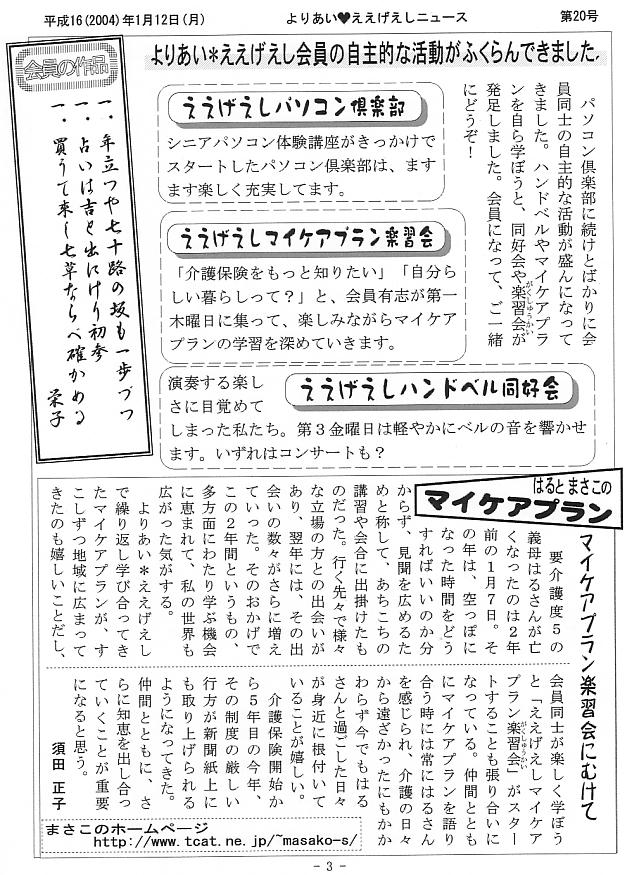 平成16(2004)年1月12日(月)
よりあい♥ええげえしニュース
第20号
よりあい＊ええげえし会員の自主的な活動がふくらんできました.
パソコン倶楽部に続けとばかりに会
員同士の自主的な活動が盛んになって
きました。ハンドベルやマイケアプラ
ンを自ら学ぼうと、同好会や楽習会が
がくしゅうかい
発足しました。会員になって、ご一緒
にどうぞ！
ええげえしパソコン倶楽部
シニアパソコン体験講座がきっかけで
スタートしたパソコン倶楽部は、ます
ます楽しく充実してます。
ええげえしマイケアプラン楽習会
「介護保険をもっと知りたい」「自分ら
しい暮らしって？」と、会員有志が第一
木曜日に集って、楽しみながらマイケア
プランの学習を深めていきます。
ええげえしハンドベル同好会
演奏する楽し
さに目覚めて
しまった私たち。第３金曜日は軽やかにベルの音を響かせ
ます。いずれはコンサートも？
会員の作品
一、年立つや七十路の坂も一歩づつ
一、占いは吉と出にけり初参
一、買うて来し七草ならべ確かめる
栄子
はるとまさこの
マイケアプラン
マイケアプラン楽習会にむけて
要介護度５の
義母はるさんが亡
くなったのは２年
前の１月７日。そ
の年は、空っぽに
なった時間をどう
すればいいのか分
からず、見聞を広めるた
めと称して、あちこちの
講習や会合に出掛けたも
のだった。行く先々で様々
な立場の方との出会いが
あり、翌年には、その出
会いの数々がさらに増え
ていった。そのおかげで
この２年間というもの、
多方面にわたり学ぶ機会
に恵まれて、私の世界も
広がった気がする。
よりあい＊ええげえし
で繰り返し学び合ってき
たマイケアプランが、す
こしずつ地域に広まって
きたのも嬉しいことだし、
会員同士が楽しく学ぼう
と「ええげえしマイケア
プラン楽習会」がスター
がくしゅうかい
トすることも張り合いに
なっている。仲間ととも
にマイケアプランを語り
合う時には常にはるさん
を感じられ、介護の日々
から遠ざかったにもかか
わらず今でもはる
さんと過ごした日々
が身近に根付いて
いることが嬉しい。
介護保険開始か
ら５年目の今年、
その制度の厳しい
行方が新聞紙上に
も取り上げられる
ようになってきた。
仲間とともに、さ
らに知恵を出し合っ
ていくことが重要
になると思う。
須田 正子
まさこのホームページ
http://www.tcat.ne.jp/~masako-s/
- 3 -